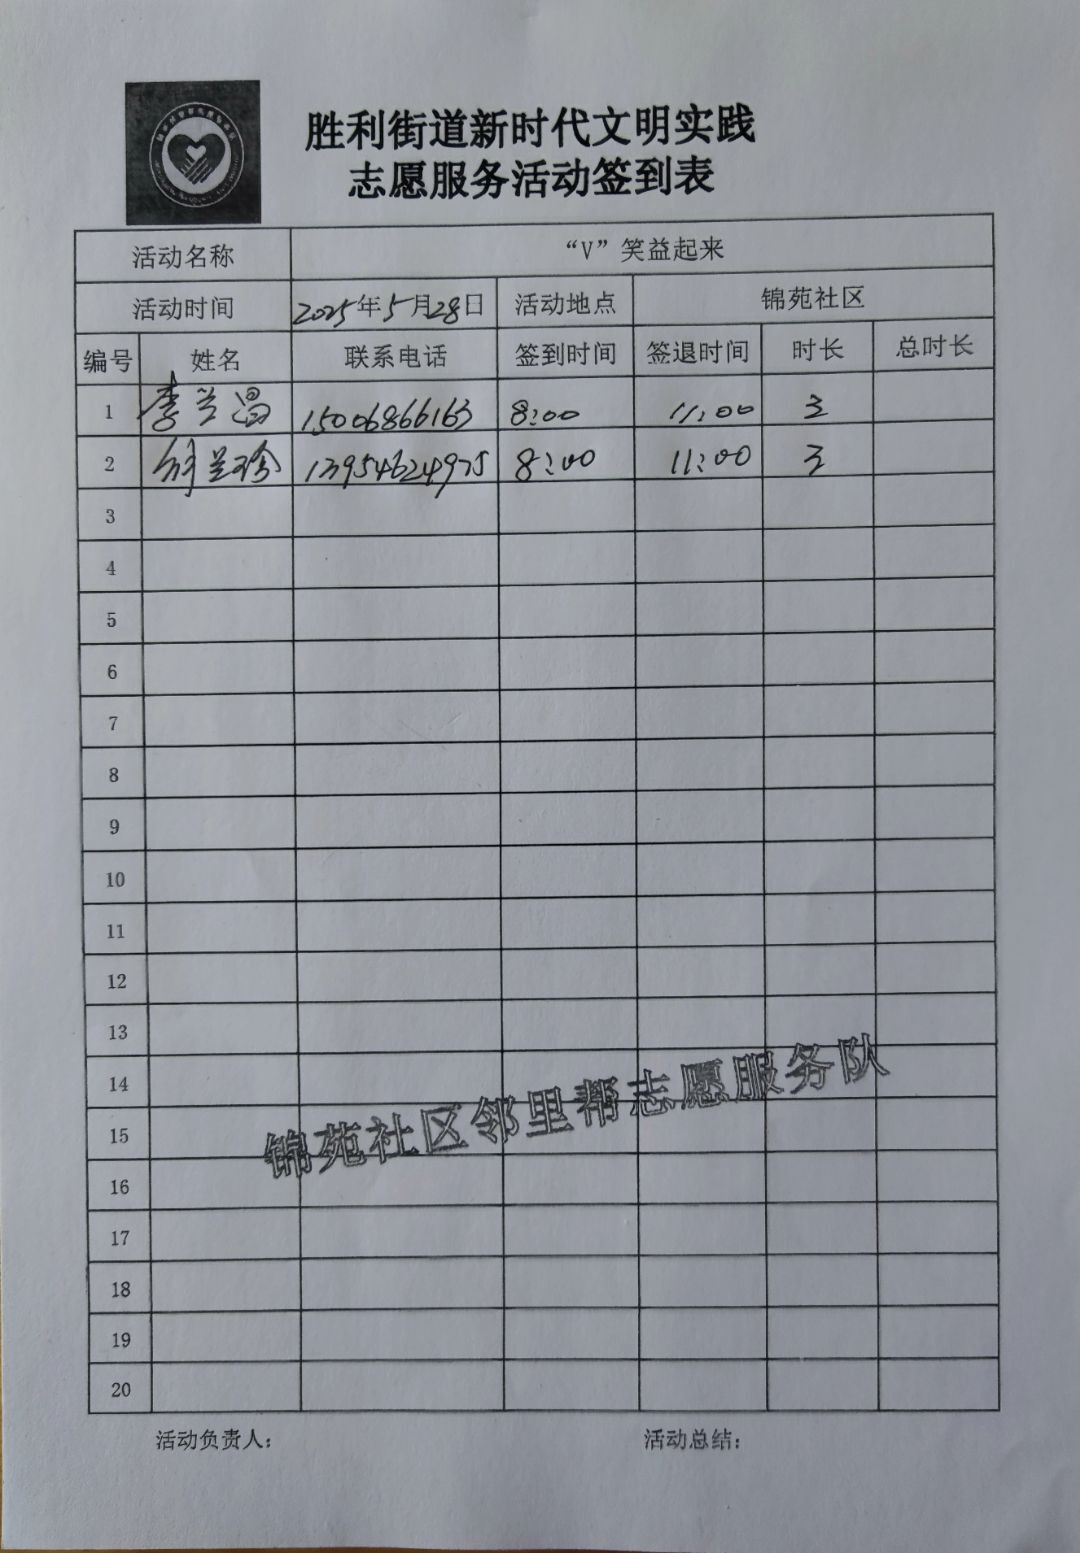 胜利街道新时代文明实践
志愿服务活动签到表
活动名称 “V”笑益起来
活动时间 2025年5月28日 活动地点 锦苑社区
编号 姓名 联系电话 签到时间 签退时间 时长 总时长
1 李兰昌 15006866163 8:00 11:00 3
2 13954624975 8:00 11:00 3
3
4
5
6
7
8
9
10
11
12
13
14
15
16
17
18
19
20
锦苑社区邻里帮志愿服务队
活动负责人: 活动总结: